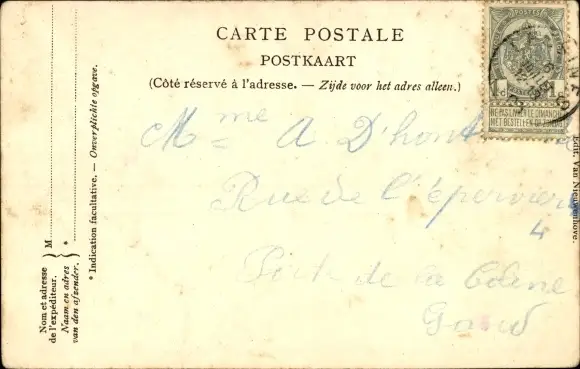 CARTE POSTALE
POSTKAART
(Côté réservé à l'adresse. — Zijde voor het adres alleen.)
Mme A D'hont
Rue de l'épervier
4
Port de la
Gand
Nom et adresse de l'expéditeur. } M
Naam en adres van den afzender. } *
* Indication facultative. — Onverplichte opgave.
POSTES
1c
NE PAS LIVRER LE DIMANCHE
NIET BESTELLEN OP ZONDAG
Edit. Van Nieuwenhove.